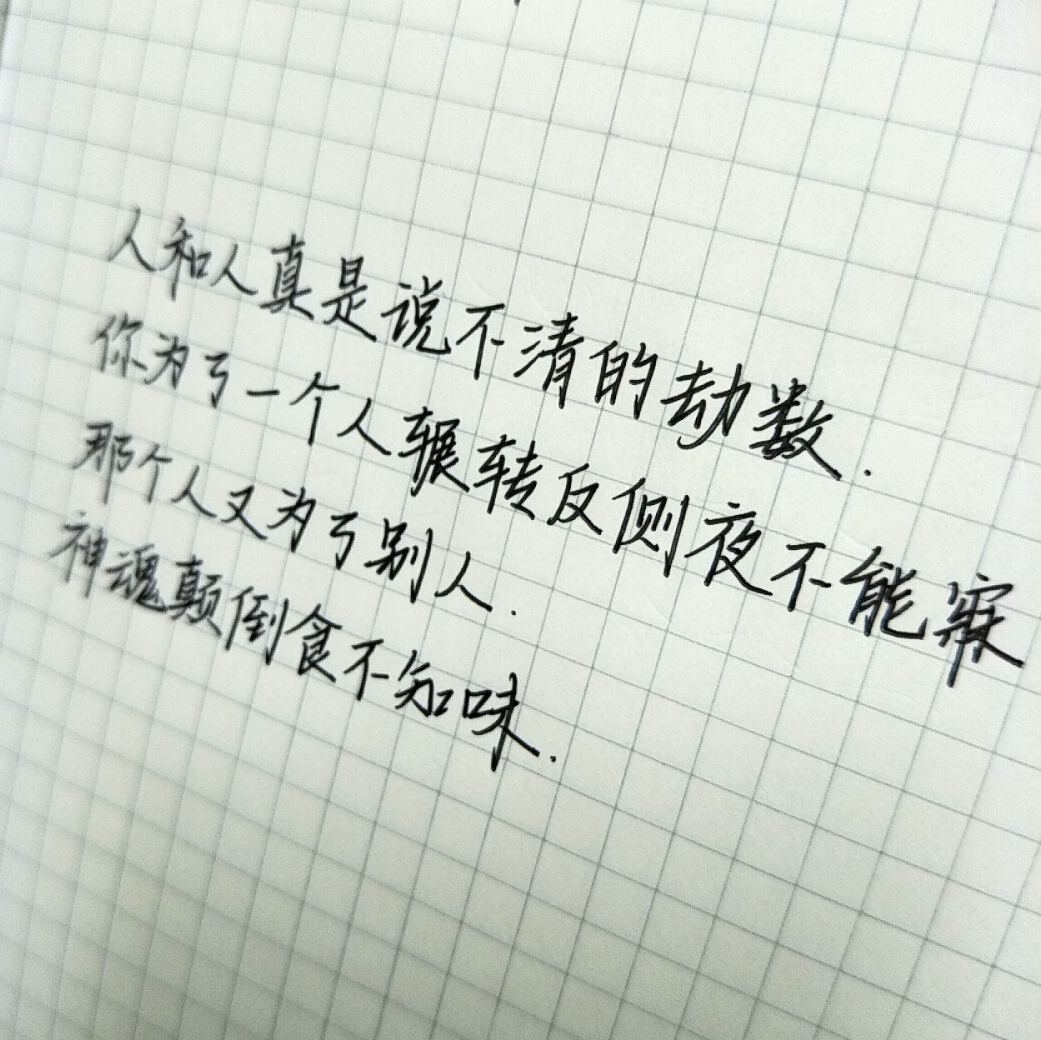 人和人真是说不清的劫数.
你为了一个人辗转反侧夜不能寐
那个人又为了别人.
神魂颠倒食不知味.